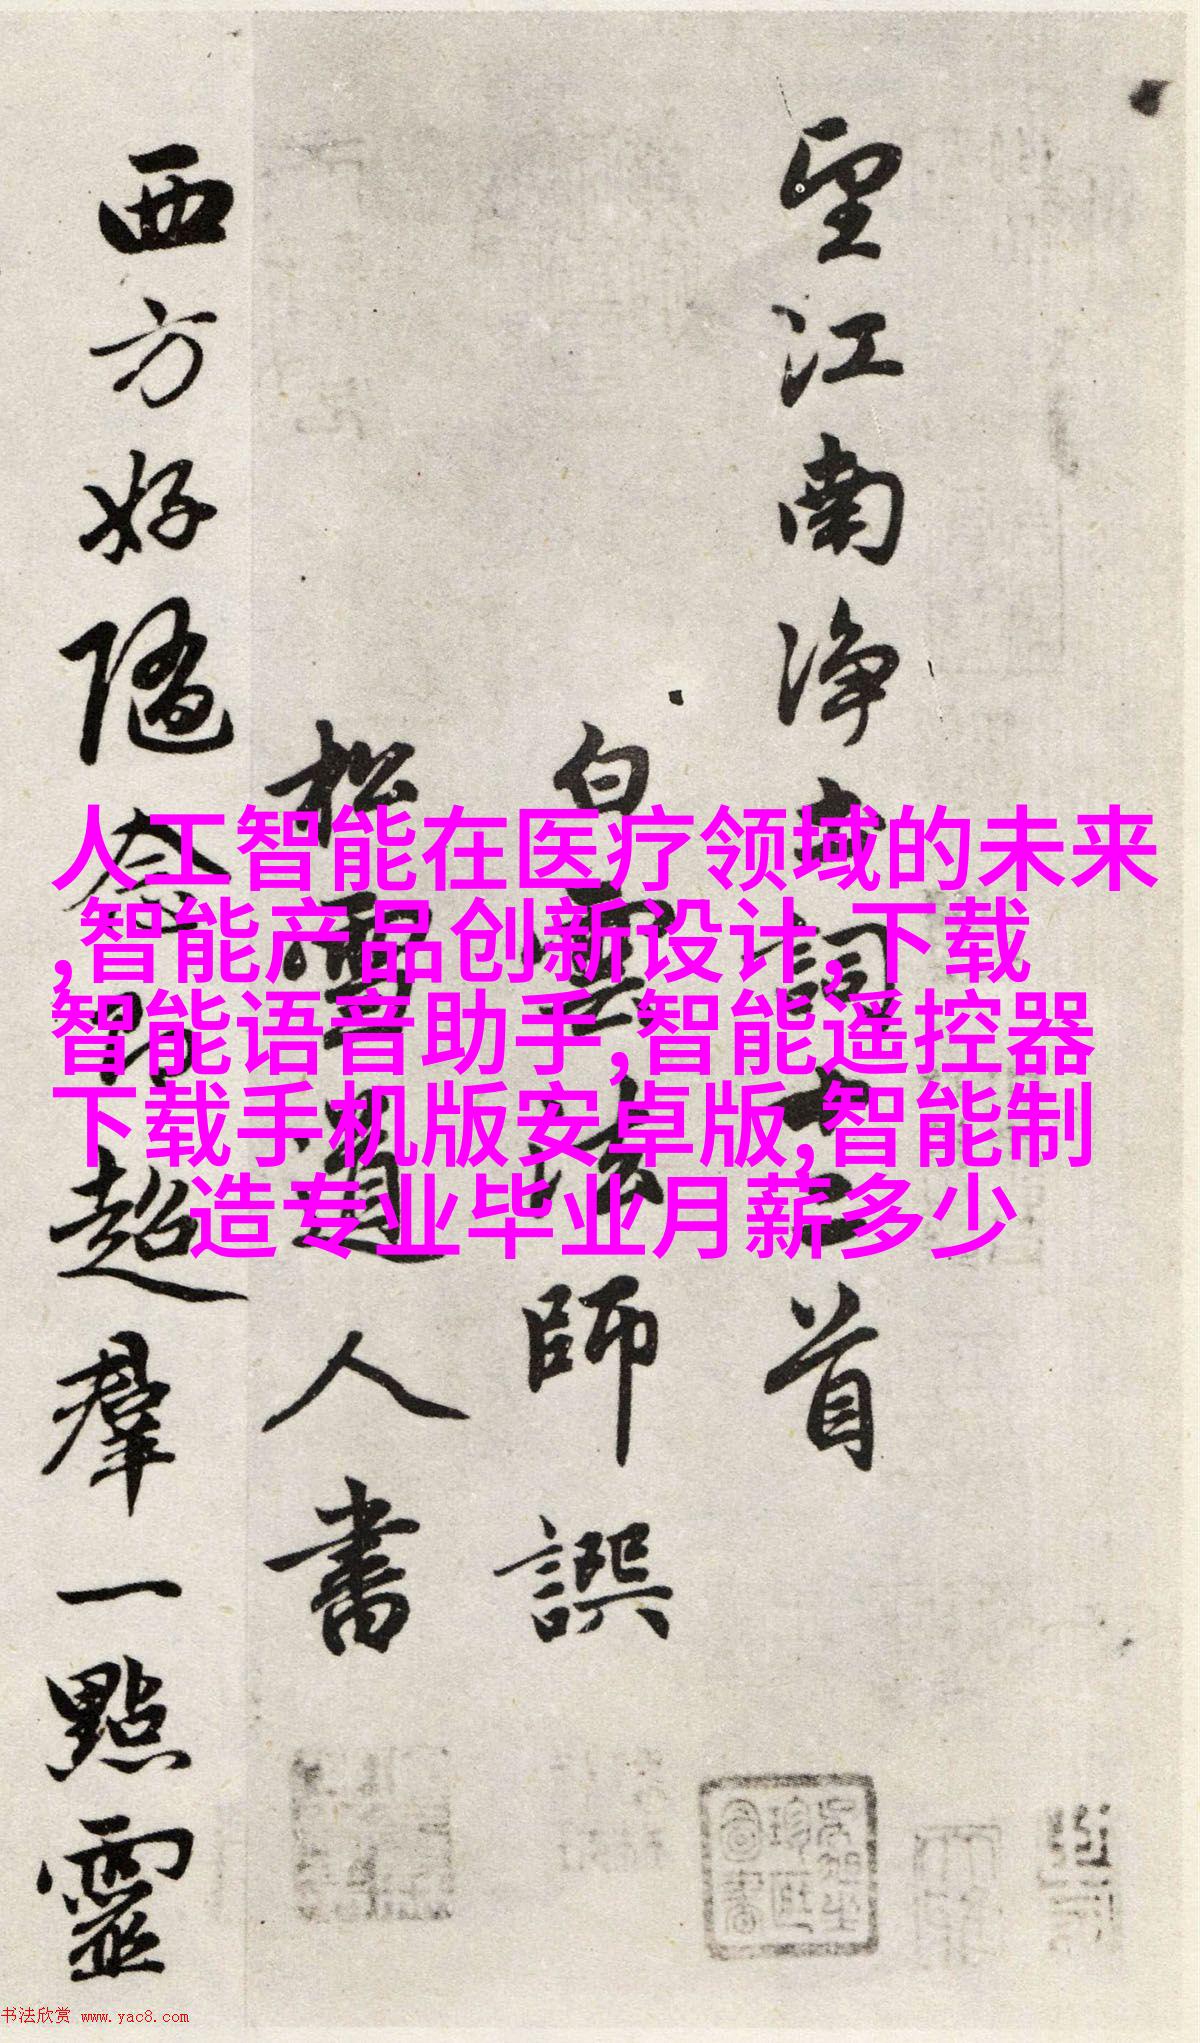 望江南净土詞十二首
白雲法師譔
松雪道人書
西方好隨念即超羣一點靈
人工智能在医疗领域的未来
,智能产品创新设计,下载
智能语音助手,智能遥控器
下载手机版安卓版,智能制
造专业毕业月薪多少
书法欣赏 www.yac8.com